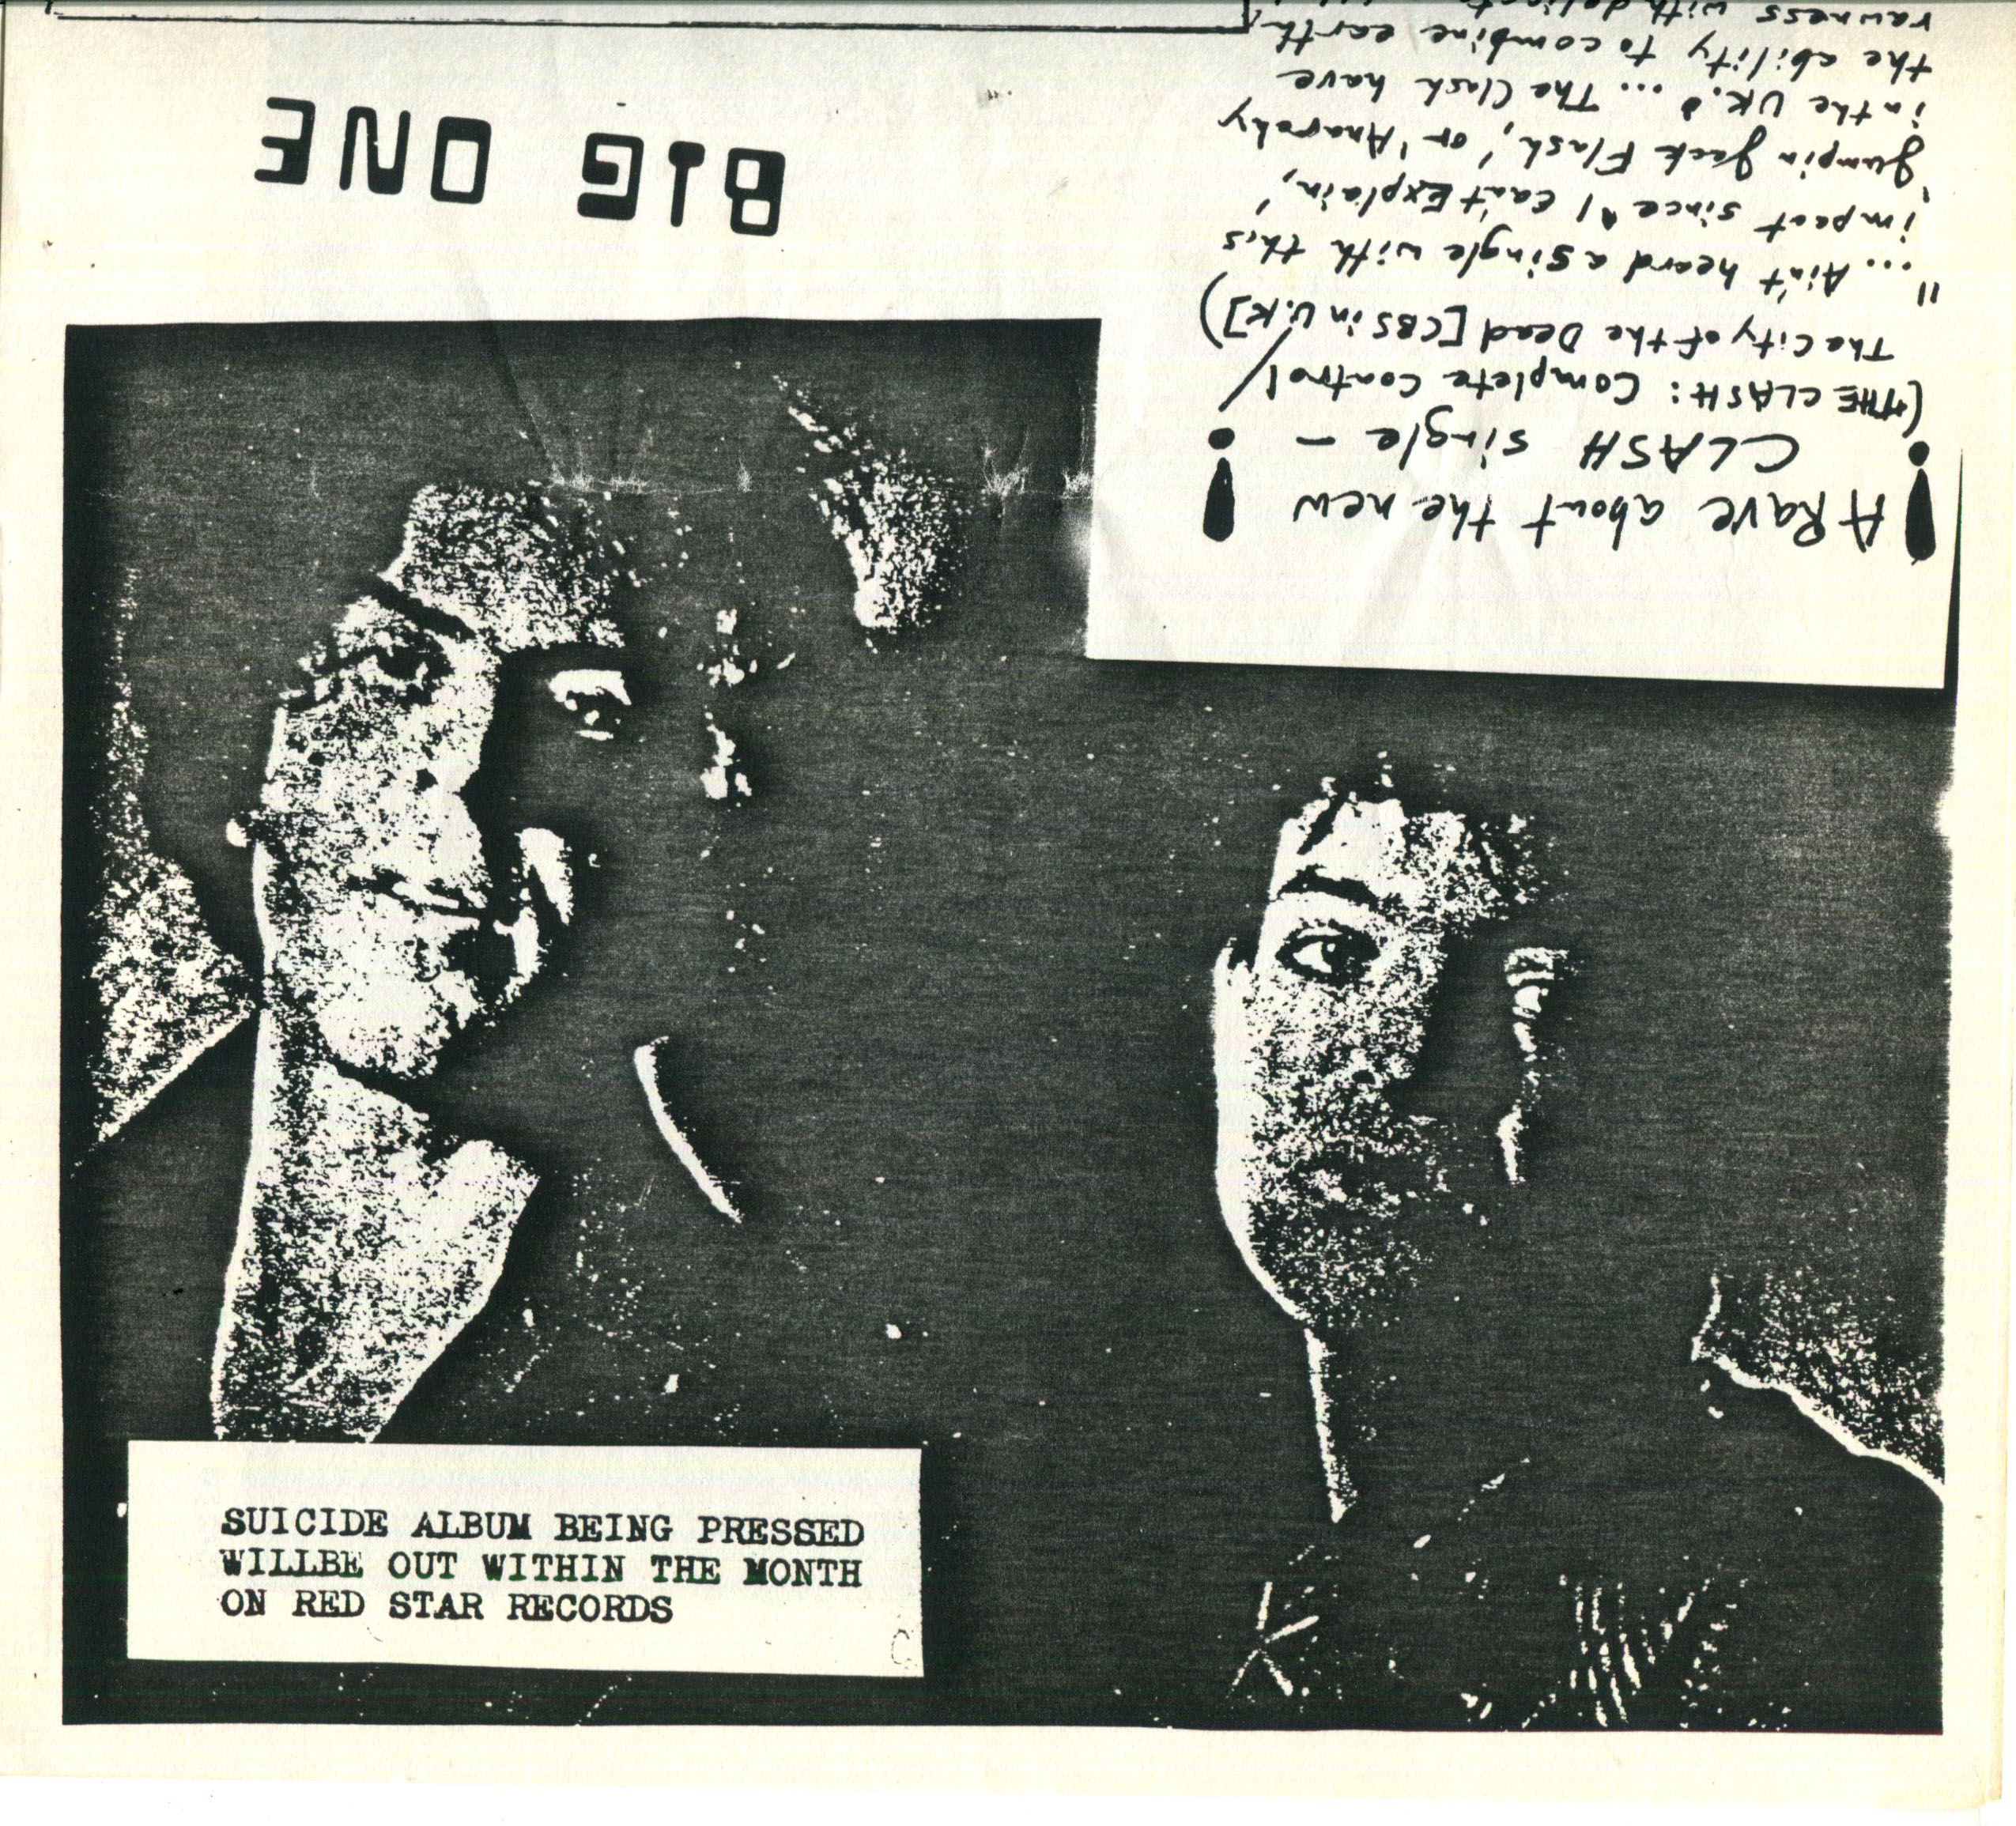 BIG ONE
! A Rave about the new !
CLASH single —
(THE CLASH: Complete Control /
The City of the Dead [CBS in U.K])
"... Ain't heard a single with this
impact since 'I Can't Explain,'
'Jumpin Jack Flash,' or 'Anarchy
in the UK.' ... The Clash have
the ability to combine earth
rawness with
SUICIDE ALBUM BEING PRESSED
WILLBE OUT WITHIN THE MONTH
ON RED STAR RECORDS